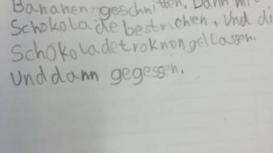 Bananen geschnitten. Dann mi
Schokolade bestrichen, und di
Schokoladetroknongellassen.
Unddann gegessen.